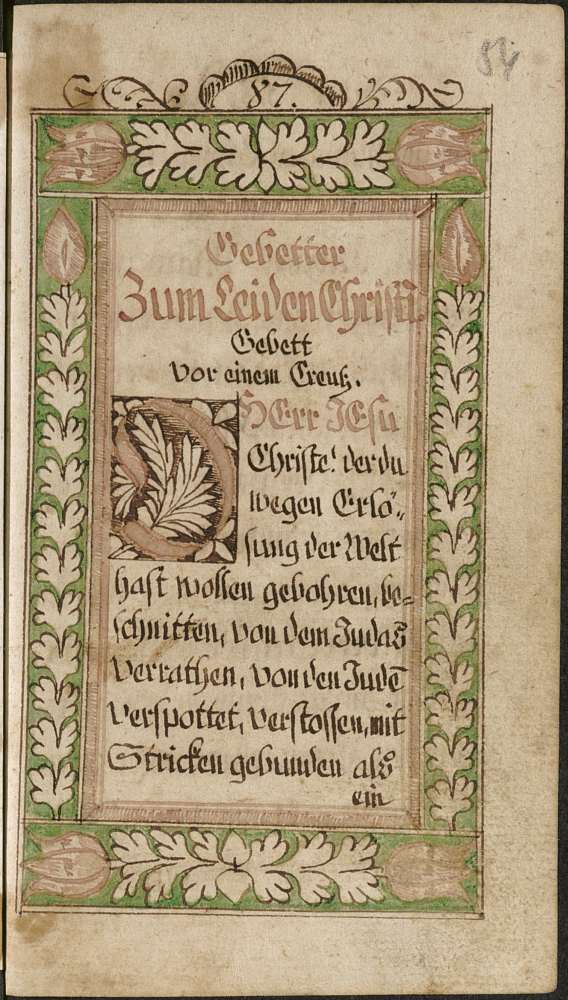 87.
Gebetter
Zum Leiden Christi.
Gebett
Vor einem Creutz.
O HErr JEsu
Christe! der du
wegen Erlö-
sung der Welt
hast wollen gebohren, be-
schnitten, von dem Judas
verrathen, von den Judē
verspottet, verstossen, mit
Stricken gebunden als
ein